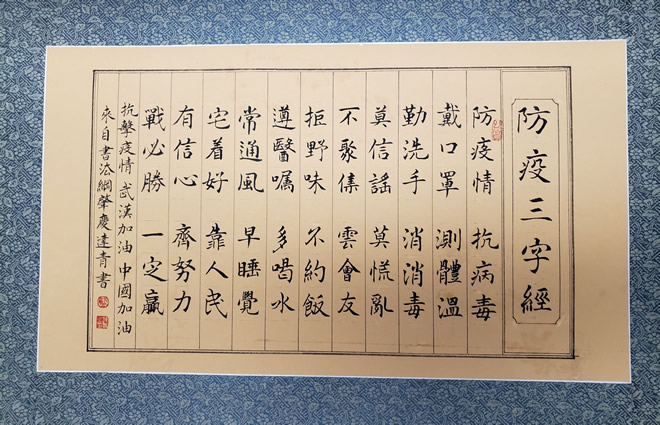 防疫三字經
防疫情 抗病毒
戴口罩 測體溫
勤洗手 消消毒
莫信謠 莫慌亂
不聚集 雲會友
拒野味 不約飯
遵醫囑 多喝水
常通風 早睡覺
宅着好 靠人民
有信心 齊努力
戰必勝 一定贏
抗擊疫情 武漢加油 中國加油
來自書法網肇慶達青書